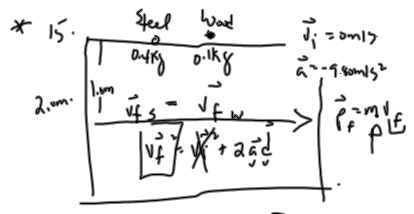 * 15. Steel Wood v⃗i = 0m/s
0.4kg 0.1kg a⃗ = -9.80m/s²
2.0m. 1.0m v⃗f s = v⃗f w p⃗f = mvf
v⃗f² = v⃗i² + 2a⃗d⃗ p